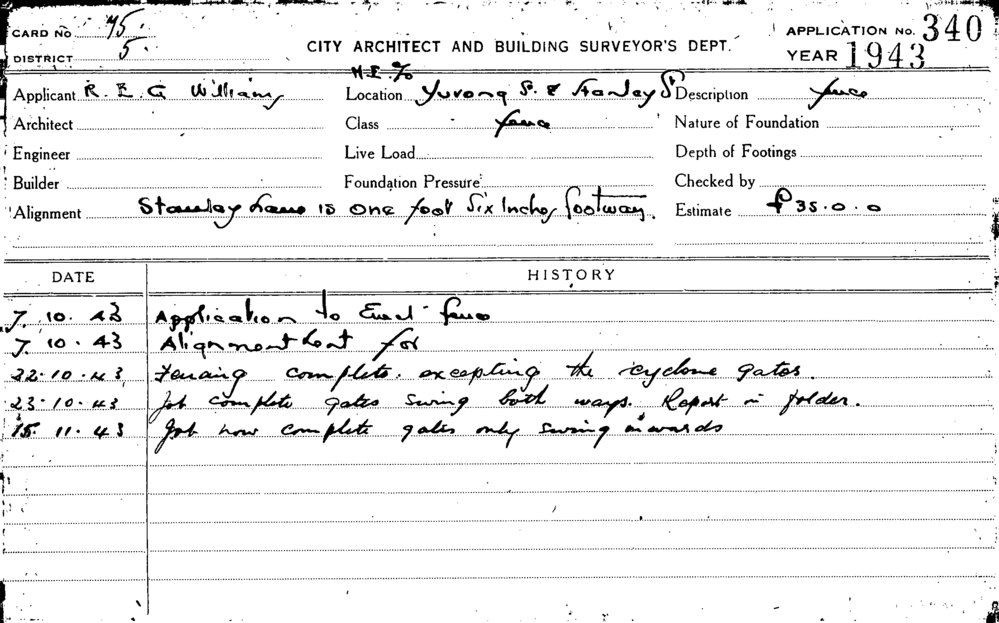 CARD No 75.
DISTRICT 5.
CITY ARCHITECT AND BUILDING SURVEYOR'S DEPT.
APPLICATION No. 340
YEAR 1943
N.E. %
Applicant R. E. G Williams Location Yurong S. & Stanley St Description fence
Architect Class fence Nature of Foundation
Engineer Live Load Depth of Footings
Builder Foundation Pressure Checked by
Alignment Stanley Lane is one foot Six Inches footway. Estimate £35.0.0
DATE HISTORY
7. 10. 43 Application to Erect fence
7. 10. 43 Alignment for
22.10.43 Fencing complete. excepting the cyclone gates.
23.10.43 Job complete gates swing both ways. Report in folder.
15. 11. 43 Job now complete gates only swing inwards